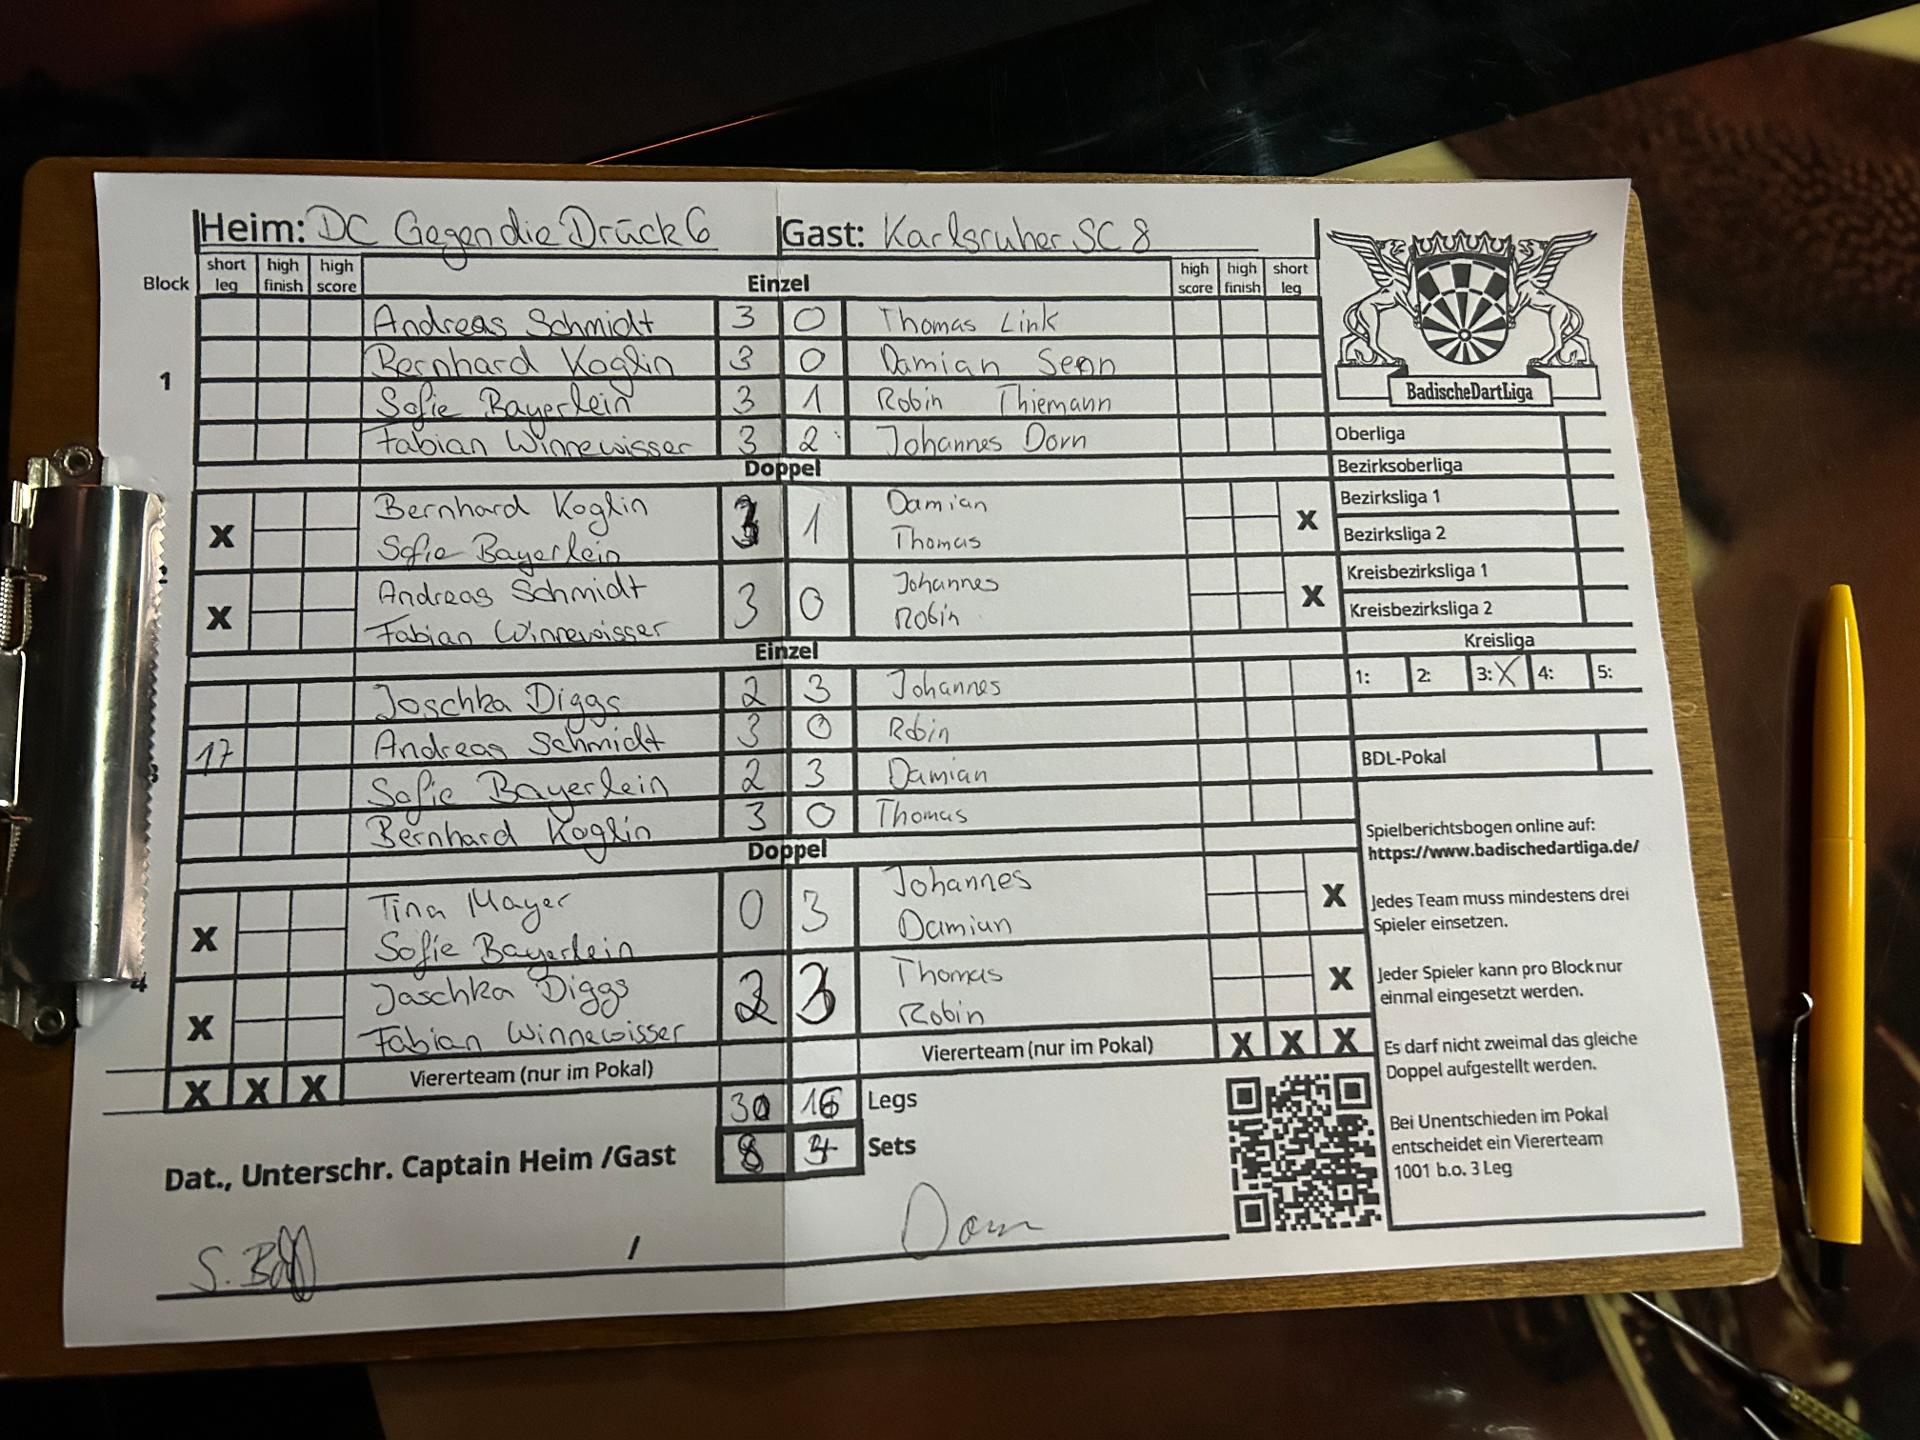 Heim: DC Gegen die Drück 6 Gast: Karlsruher SC 8
Block short leg high finish high score Einzel high score high finish short leg
Andreas Schmidt 3 0 Thomas Link
1 Bernhard Koglin 3 0 Damian Senn
Sofie Bayerlein 3 1 Robin Thiemann
Fabian Winnewisser 3 2 Johannes Dorn
Doppel
X Bernhard Koglin 3 1 Damian X
Sofie Bayerlein Thomas
X Andreas Schmidt 3 0 Johannes X
Fabian Winnewisser Robin
Einzel
Joschka Diggs 2 3 Johannes
17 Andreas Schmidt 3 0 Robin
Sofie Bayerlein 2 3 Damian
Bernhard Koglin 3 0 Thomas
Doppel
X Tina Mayer 0 3 Johannes X
Sofie Bayerlein Damian
4 X Jaschka Diggs 2 3 Thomas X
Fabian Winnewisser Robin
X X X Viererteam (nur im Pokal) Viererteam (nur im Pokal) X X X
30 16 Legs
8 4 Sets
Dat., Unterschr. Captain Heim /Gast
/
BadischeDartLiga
Oberliga
Bezirksoberliga
Bezirksliga 1
Bezirksliga 2
Kreisbezirksliga 1
Kreisbezirksliga 2
Kreisliga
1: 2: 3: X 4: 5:
BDL-Pokal
Spielberichtsbogen online auf:
https://www.badischedartliga.de/
Jedes Team muss mindestens drei
Spieler einsetzen.
Jeder Spieler kann pro Block nur
einmal eingesetzt werden.
Es darf nicht zweimal das gleiche
Doppel aufgestellt werden.
Bei Unentschieden im Pokal
entscheidet ein Viererteam
1001 b.o. 3 Leg